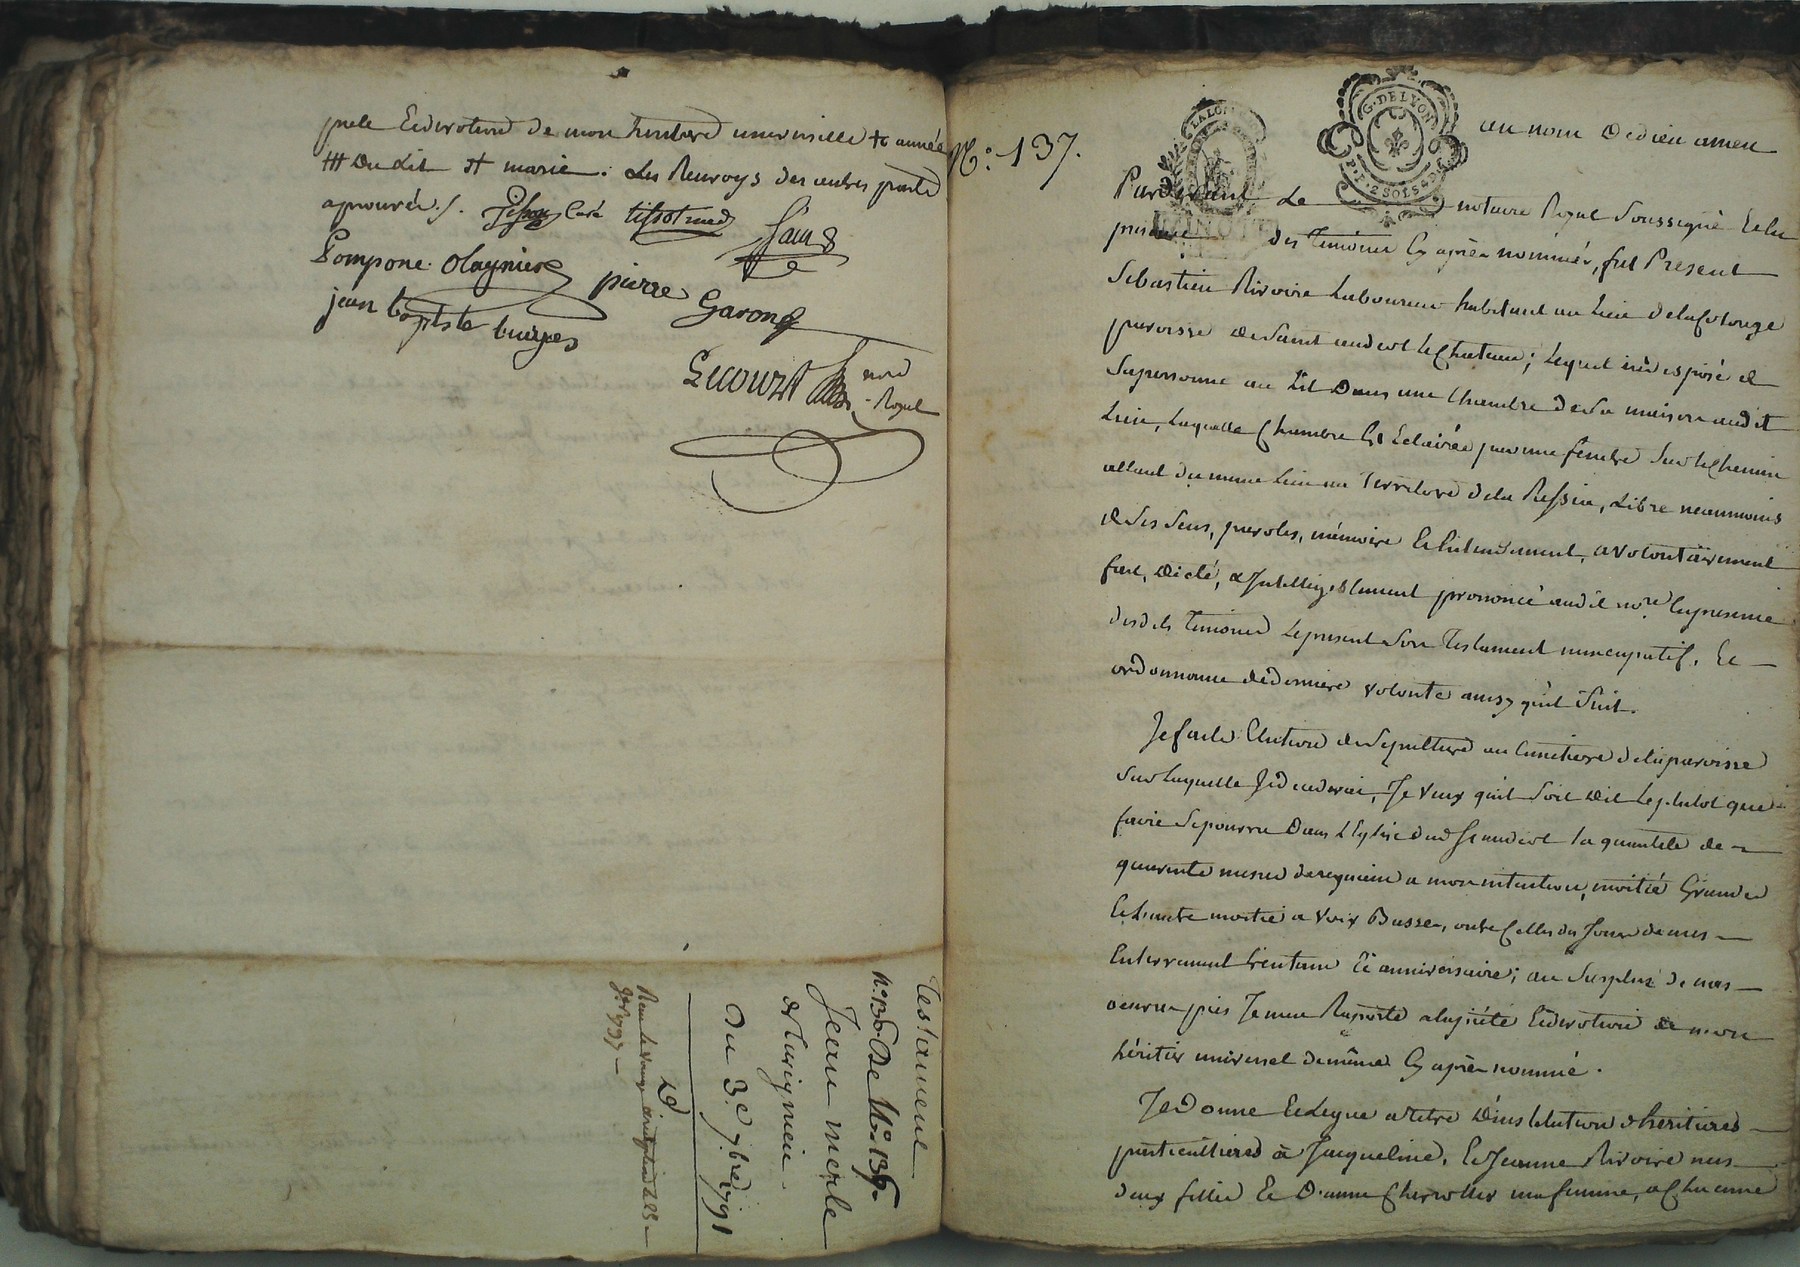 piete Et devotion de mon heritiere universelle ++ année
+++ Dudit # marie : Les Renvoys des autres parts
aprouvés ./.
Curé tissotmed
Pompone Olagniere
pierre Garong
jean baptiste
Lecourt
nore
Royal
Testament
N°. 136 De N°. 136
Jean merle
de Turignieu
Du 3e. 7bre 1791
N°. 137.
LA LOI
G. DE LYON
P. P. 2 SOLS 8 D.
au nom De dieu amen
Pardevant Le notaire Royal Soussigné Et en
presence des Temoins Cy après nommés, fut Present
Sebastien Rivoire Laboureur habitant au Lieu de la folouge
paroisse de Saint andeol le Chateau ; Lequel indisposé de
Sa personne au Lit Dans une Chambre de Sa maison audit
Lieu, Laquelle Chambre Est Eclairée par une fenetre Sur le Chemin
allant du meme Lieu au Territoire de la Ressia, Libre neanmoins
de Ses Sens, paroles, mémoire Et Entendement, a volontairement
fait, dicté, & Intelligiblement prononcé audit nore En presence
desdits Temoins Le present Son Testament nuncupatif, Et
ordonnance de derniere volonté ainsy qu'il Suit.
Je fais Election de Sepulture au Cimetiere de la paroisse
Sur Laquelle Je decederai, Je veux qu'il Soit dit Le plutot que
faire Se pourra Dans L'Eglise dud St andeol la quantité de
quarente messes de requiem a mon intention, moitié Grandes
Et hautes moitié a Voix Basse, outre Celles des Jours de mes
Enterrement trentaine Et anniversaire ; au Surplus de mes
oeuvres pies Je m'en Raporte a la piété Et devotion de mon
héritier universel demême Cy après nommé.
Je Donne Et Legue a titre D'institution d'heritieres
particullieres à Jacqueline, Et Jeanne Rivoire mes
deux filles Et D'anne Chervollier ma femme, a Chacune